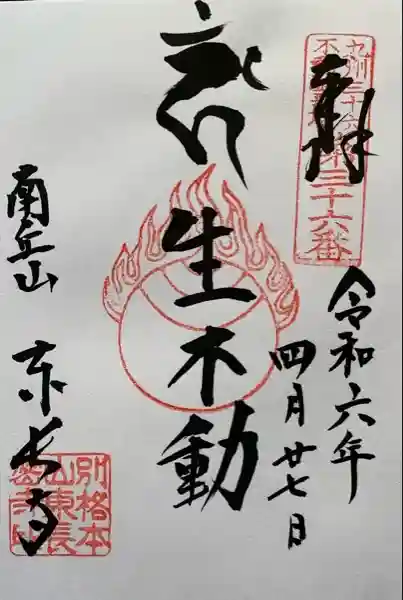 奉拝
九州三十六
不動霊場
第三十六番
令和六年
四月廿七日
生不動
南岳山
東長寺
別格本
山東長
密寺印